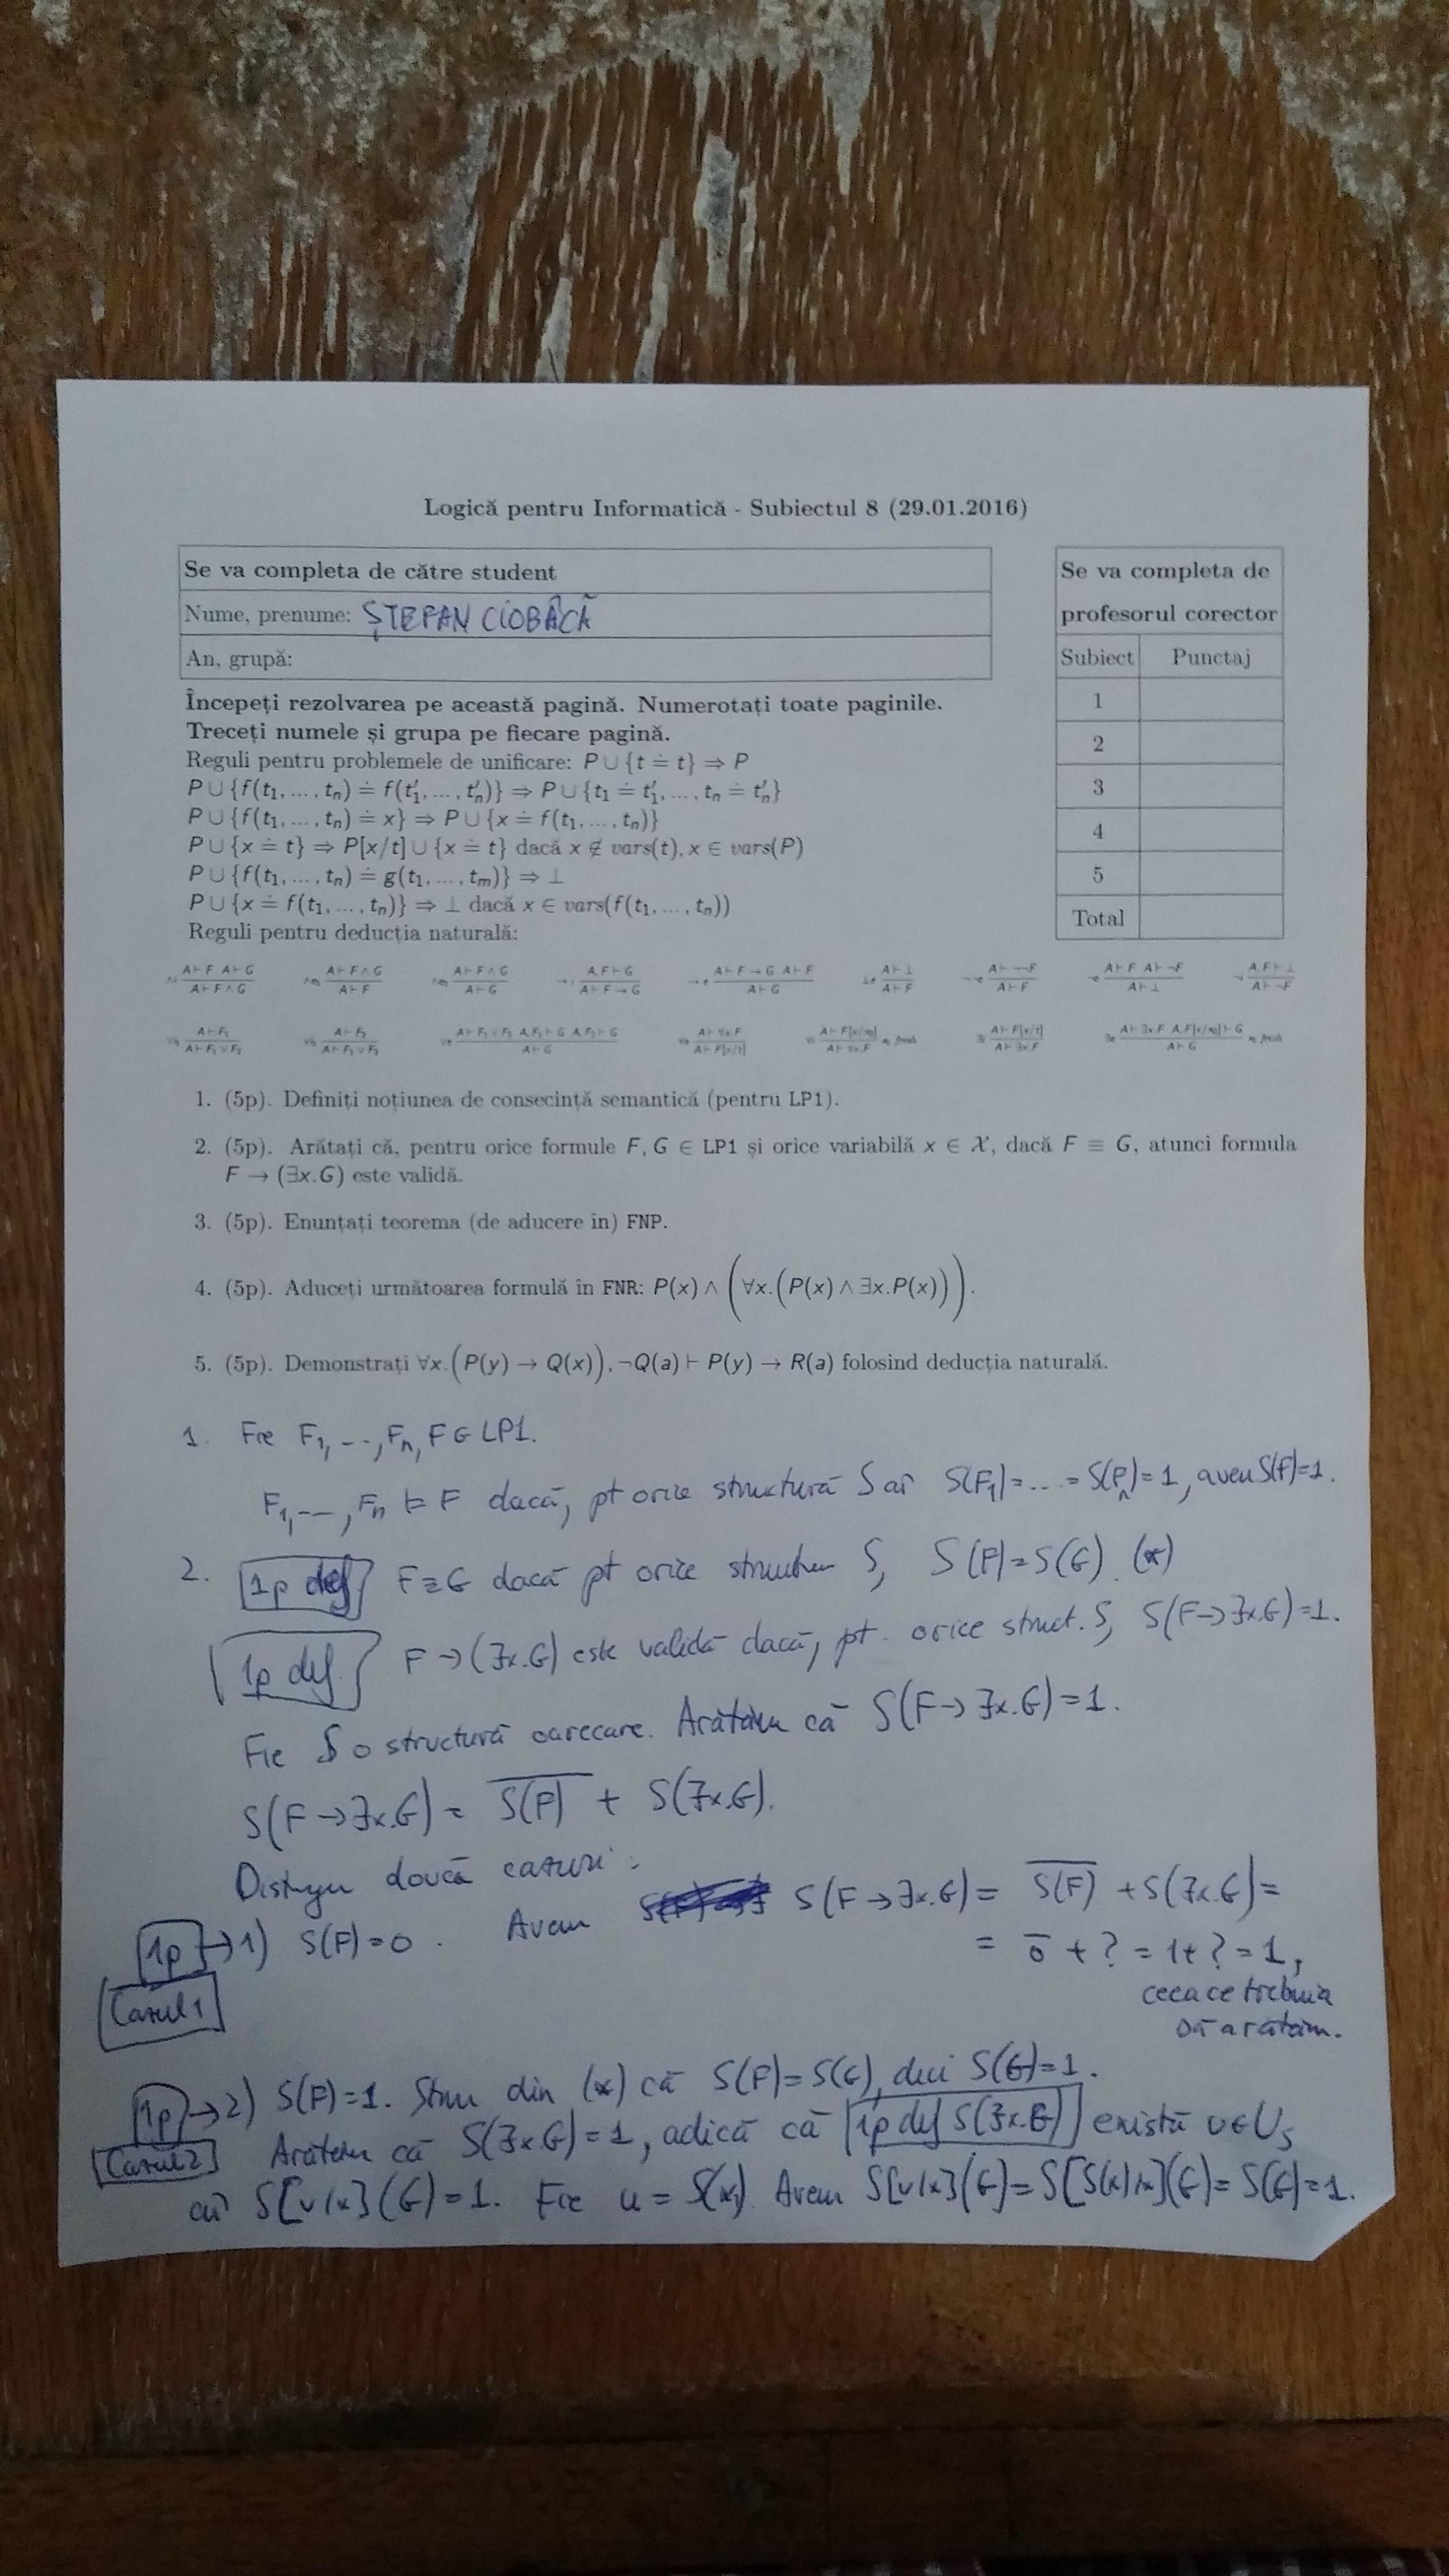 Logică pentru Informatică - Subiectul 8 (29.01.2016)
Se va completa de către student
Nume, prenume: ȘTEFAN CIOBÂCĂ
An, grupă:
Se va completa de
profesorul corector
Subiect Punctaj
1
2
3
4
5
Total
Începeți rezolvarea pe această pagină. Numerotați toate paginile.
Treceți numele și grupa pe fiecare pagină.
Reguli pentru problemele de unificare: P ∪ {t ≐ t} ⇒ P
P ∪ {f(t₁, ..., tₙ) ≐ f(t′₁, ..., t′ₙ)} ⇒ P ∪ {t₁ ≐ t′₁, ..., tₙ ≐ t′ₙ}
P ∪ {f(t₁, ..., tₙ) ≐ x} ⇒ P ∪ {x ≐ f(t₁, ..., tₙ)}
P ∪ {x ≐ t} ⇒ P[x/t] ∪ {x ≐ t} dacă x ∉ vars(t), x ∈ vars(P)
P ∪ {f(t₁, ..., tₙ) ≐ g(t₁, ..., tₘ)} ⇒ ⊥
P ∪ {x ≐ f(t₁, ..., tₙ)} ⇒ ⊥ dacă x ∈ vars(f(t₁, ..., tₙ))
Reguli pentru deducția naturală:
A⊢F A⊢G / A⊢F∧G A⊢F∧G / A⊢F A⊢F∧G / A⊢G A,F⊢G / A⊢F→G A⊢F→G A⊢F / A⊢G A⊢⊥ / A⊢F A⊢¬¬F / A⊢F A⊢F A⊢¬F / A⊢⊥ A,F⊢⊥ / A⊢¬F
A⊢F₁ / A⊢F₁∨F₂ A⊢F₂ / A⊢F₁∨F₂ A⊢F₁∨F₂ A,F₁⊢G A,F₂⊢G / A⊢G A⊢∀x.F / A⊢F[x/t] A⊢F[x/x₀] / A⊢∀x.F x₀ fresh A⊢F[x/t] / A⊢∃x.F A⊢∃x.F A,F[x/x₀]⊢G / A⊢G x₀ fresh
1. (5p). Definiți noțiunea de consecință semantică (pentru LP1).
2. (5p). Arătați că, pentru orice formule F, G ∈ LP1 și orice variabilă x ∈ X, dacă F ≡ G, atunci formula
F → (∃x.G) este validă.
3. (5p). Enunțați teorema (de aducere în) FNP.
4. (5p). Aduceți următoarea formulă în FNR: P(x) ∧ (∀x.(P(x) ∧ ∃x.P(x))).
5. (5p). Demonstrați ∀x.(P(y) → Q(x)), ¬Q(a) ⊢ P(y) → R(a) folosind deducția naturală.
1. Fie F₁, --, Fₙ, F ∈ LP1.
F₁, --, Fₙ ⊨ F dacă, pt orice structură S aî S(F₁)=...=S(Fₙ)=1, avem S(F)=1.
2. 1p def F≡G dacă pt orice structura S, S(F)=S(G). (*)
1p def. F→(∃x.G) este validă dacă, pt. orice struct. S, S(F→∃x.G)=1.
Fie S o structură oarecare. Arătăm că S(F→∃x.G)=1.
S(F→∃x.G) = S̅(̅F̅)̅ + S(∃x.G).
Distingem două cazuri:
1p → 1) S(F)=0. Avem S(F→∃x.G) = S̅(̅F̅)̅ + S(∃x.G)=
Cazul 1
= 0̅ + ? = 1+ ? = 1,
ceea ce trebuia
să arătăm.
1p → 2) S(F)=1. Știm din (*) că S(F)=S(G), deci S(G)=1.
Cazul 2 Arătăm că S(∃x.G)=1, adică că 1p def S(∃x.G) există u∈Uₛ
aî S[u/x](G)=1. Fie u = S(x). Avem S[u/x](G)=S[S(x)/x](G)=S(G)=1.